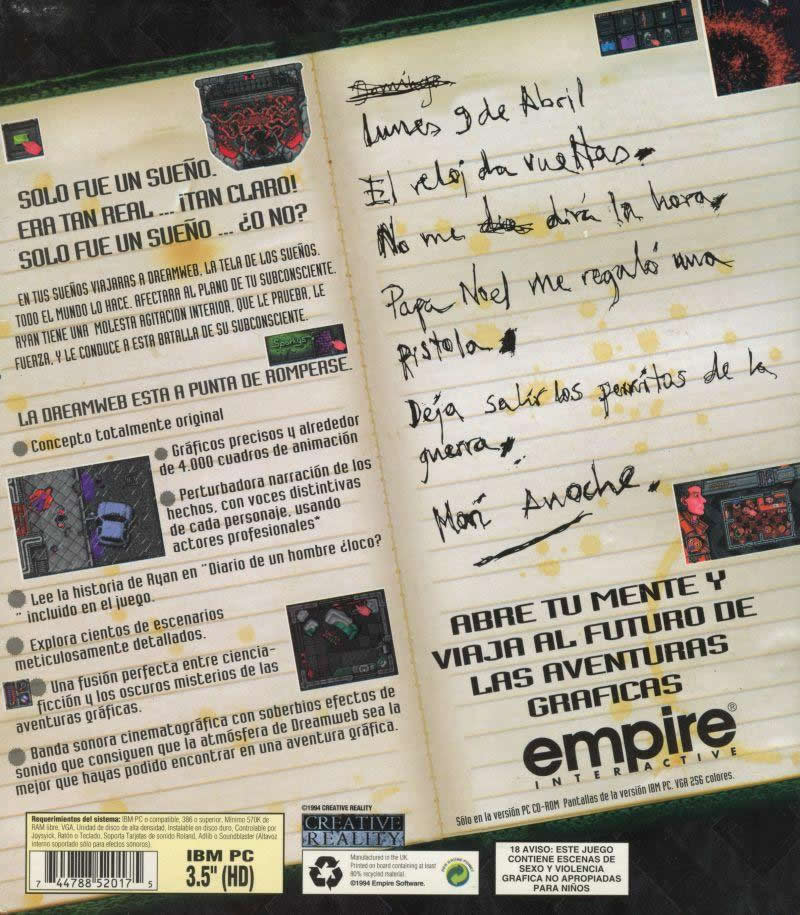 SOLO FUE UN SUEÑO.
ERA TAN REAL ... ¡TAN CLARO!
SOLO FUE UN SUEÑO ... ¿O NO?
EN TUS SUEÑOS VIAJARAS A DREAMWEB, LA TELA DE LOS SUEÑOS.
TODO EL MUNDO LO HACE. AFECTARA AL PLANO DE TU SUBCONSCIENTE.
RYAN TIENE UNA MOLESTA AGITACION INTERIOR, QUE LE PRUEBA, LE
FUERZA, Y LE CONDUCE A ESTA BATALLA DE SU SUBCONSCIENTE.
LA DREAMWEB ESTA A PUNTA DE ROMPERSE.
Concepto totalmente original
Gráficos precisos y alrededor
de 4.000 cuadros de animación
Perturbadora narración de los
hechos, con voces distintivas
de cada personaje, usando
actores profesionales*
Lee la historia de Ryan en "Diario de un hombre ¿loco?
" incluido en el juego.
Explora cientos de escenarios
meticulosamente detallados.
Una fusión perfecta entre ciencia-
ficción y los oscuros misterios de las
aventuras gráficas.
Banda sonora cinematográfica con soberbios efectos de
sonido que consiguen que la atmósfera de Dreamweb sea la
mejor que hayas podido encontrar en una aventura gráfica.
Domingo
Lunes 9 de Abril
El reloj da vueltas.
No me dirá la hora.
Papa Noel me regaló una
Pistola.
Deja salir los perritos de la
guerra.
Anoche.
ABRE TU MENTE Y
VIAJA AL FUTURO DE
LAS AVENTURAS
GRAFICAS
empire®
INTERACTIVE
Sólo en la versión PC CD-ROM. Pantallas de la versión IBM PC. VGA 256 colores.
Requerimientos del sistema: IBM PC o compatible, 386 o superior. Mínimo 570K de
RAM libre, VGA, Unidad de disco de alta densidad, Instalable en disco duro, Controlable por
Joysyick, Ratón o Teclado, Soporta Tarjetas de sonido Roland, Adlib o Soundblaster (Altavoz
interno soportado sólo para efectos sonoros).
7 44788 52017 5
IBM PC
3.5" (HD)
©1994 CREATIVE REALITY
CREATIVE
REALITY
Manufactured in the UK.
Printed on board containing at least
80% recycled material.
©1994 Empire Software.
18 AVISO: ESTE JUEGO
CONTIENE ESCENAS DE
SEXO Y VIOLENCIA
GRAFICA NO APROPIADAS
PARA NIÑOS